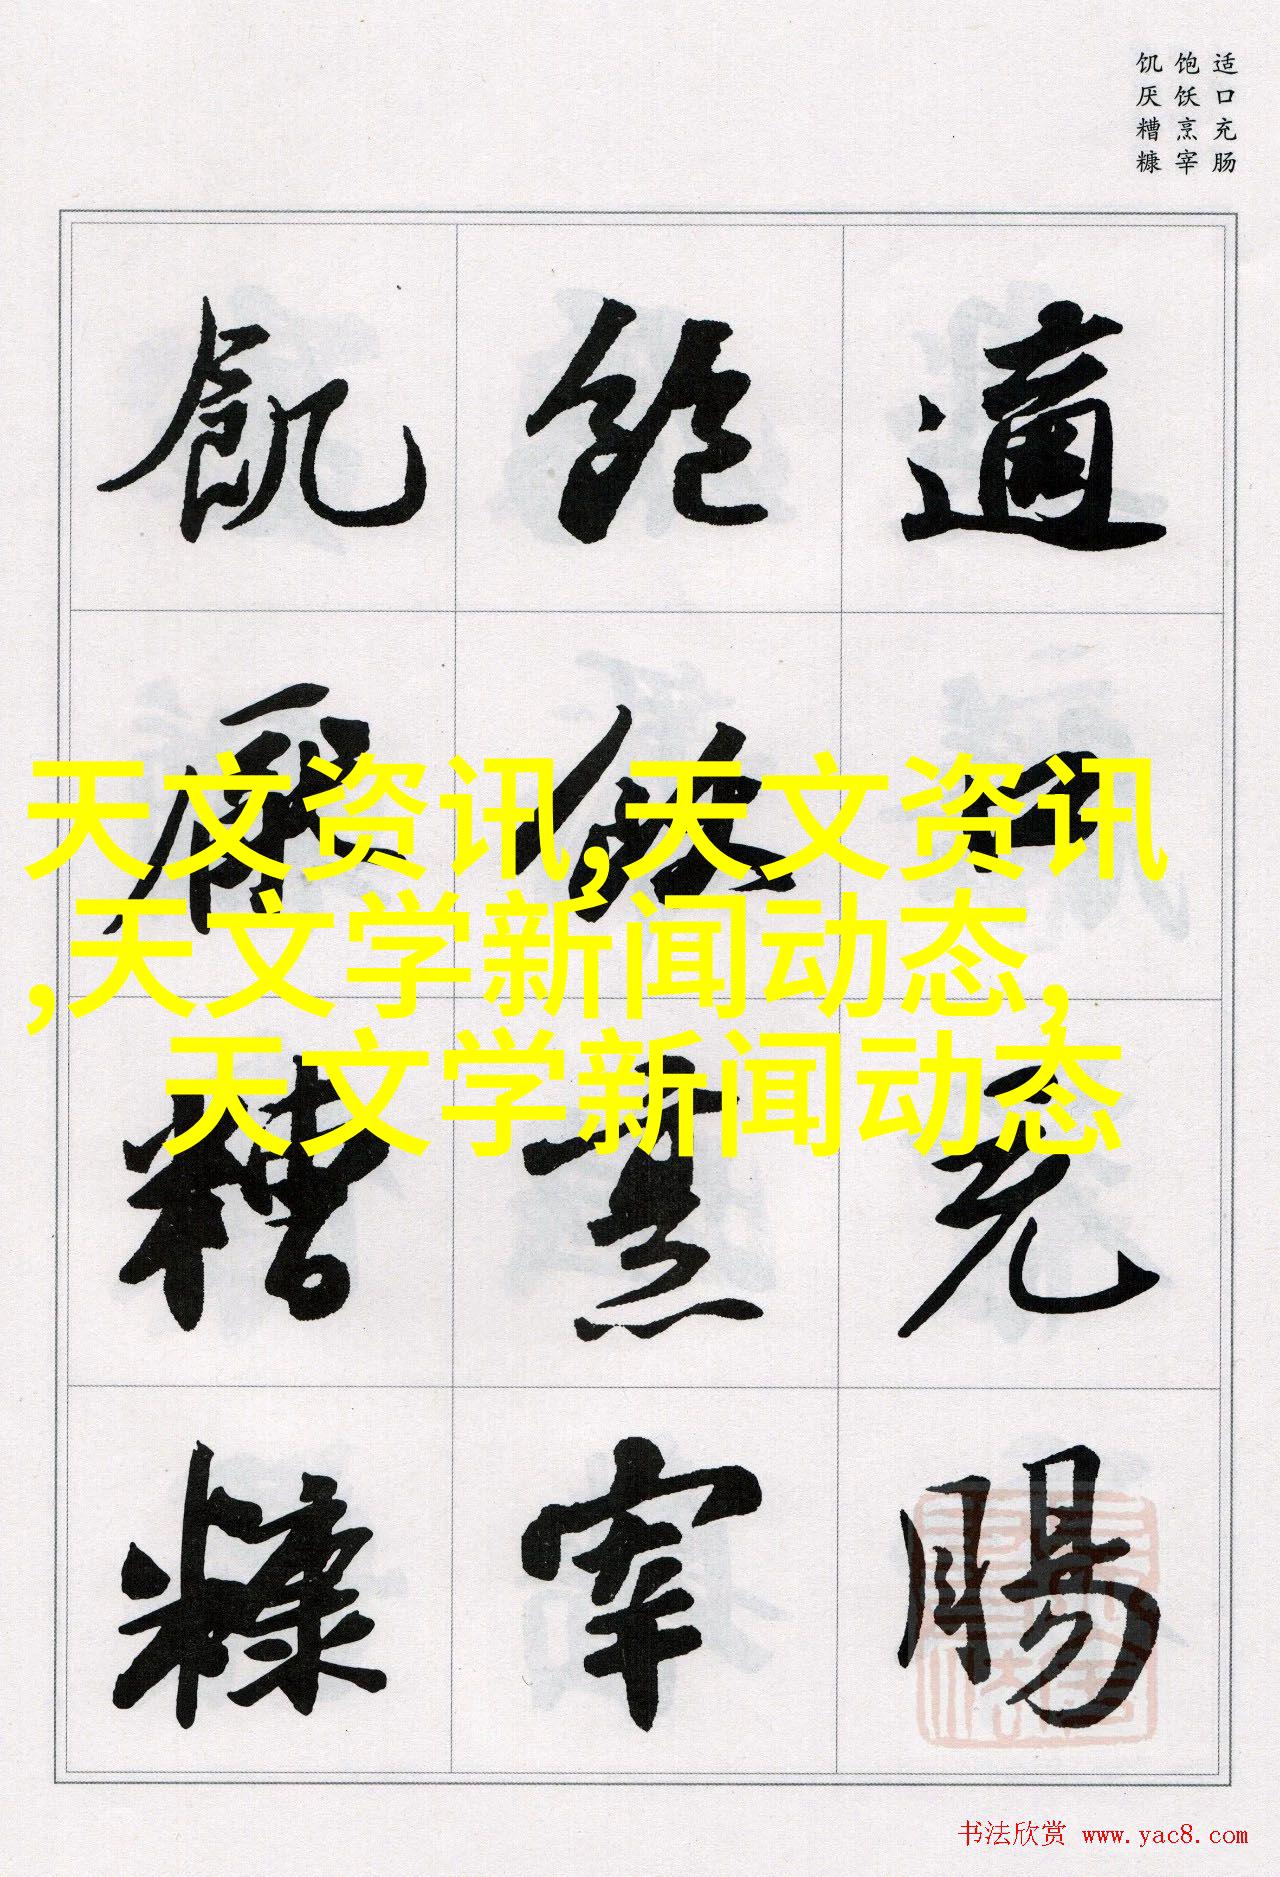 适口充肠
饱饫烹宰
饥厌糟糠
適口充腸
飽飫烹宰
飢厭糟糠
天文资讯,天文资讯
,天文学新闻动态,
天文学新闻动态
书法欣赏 www.yac8.com